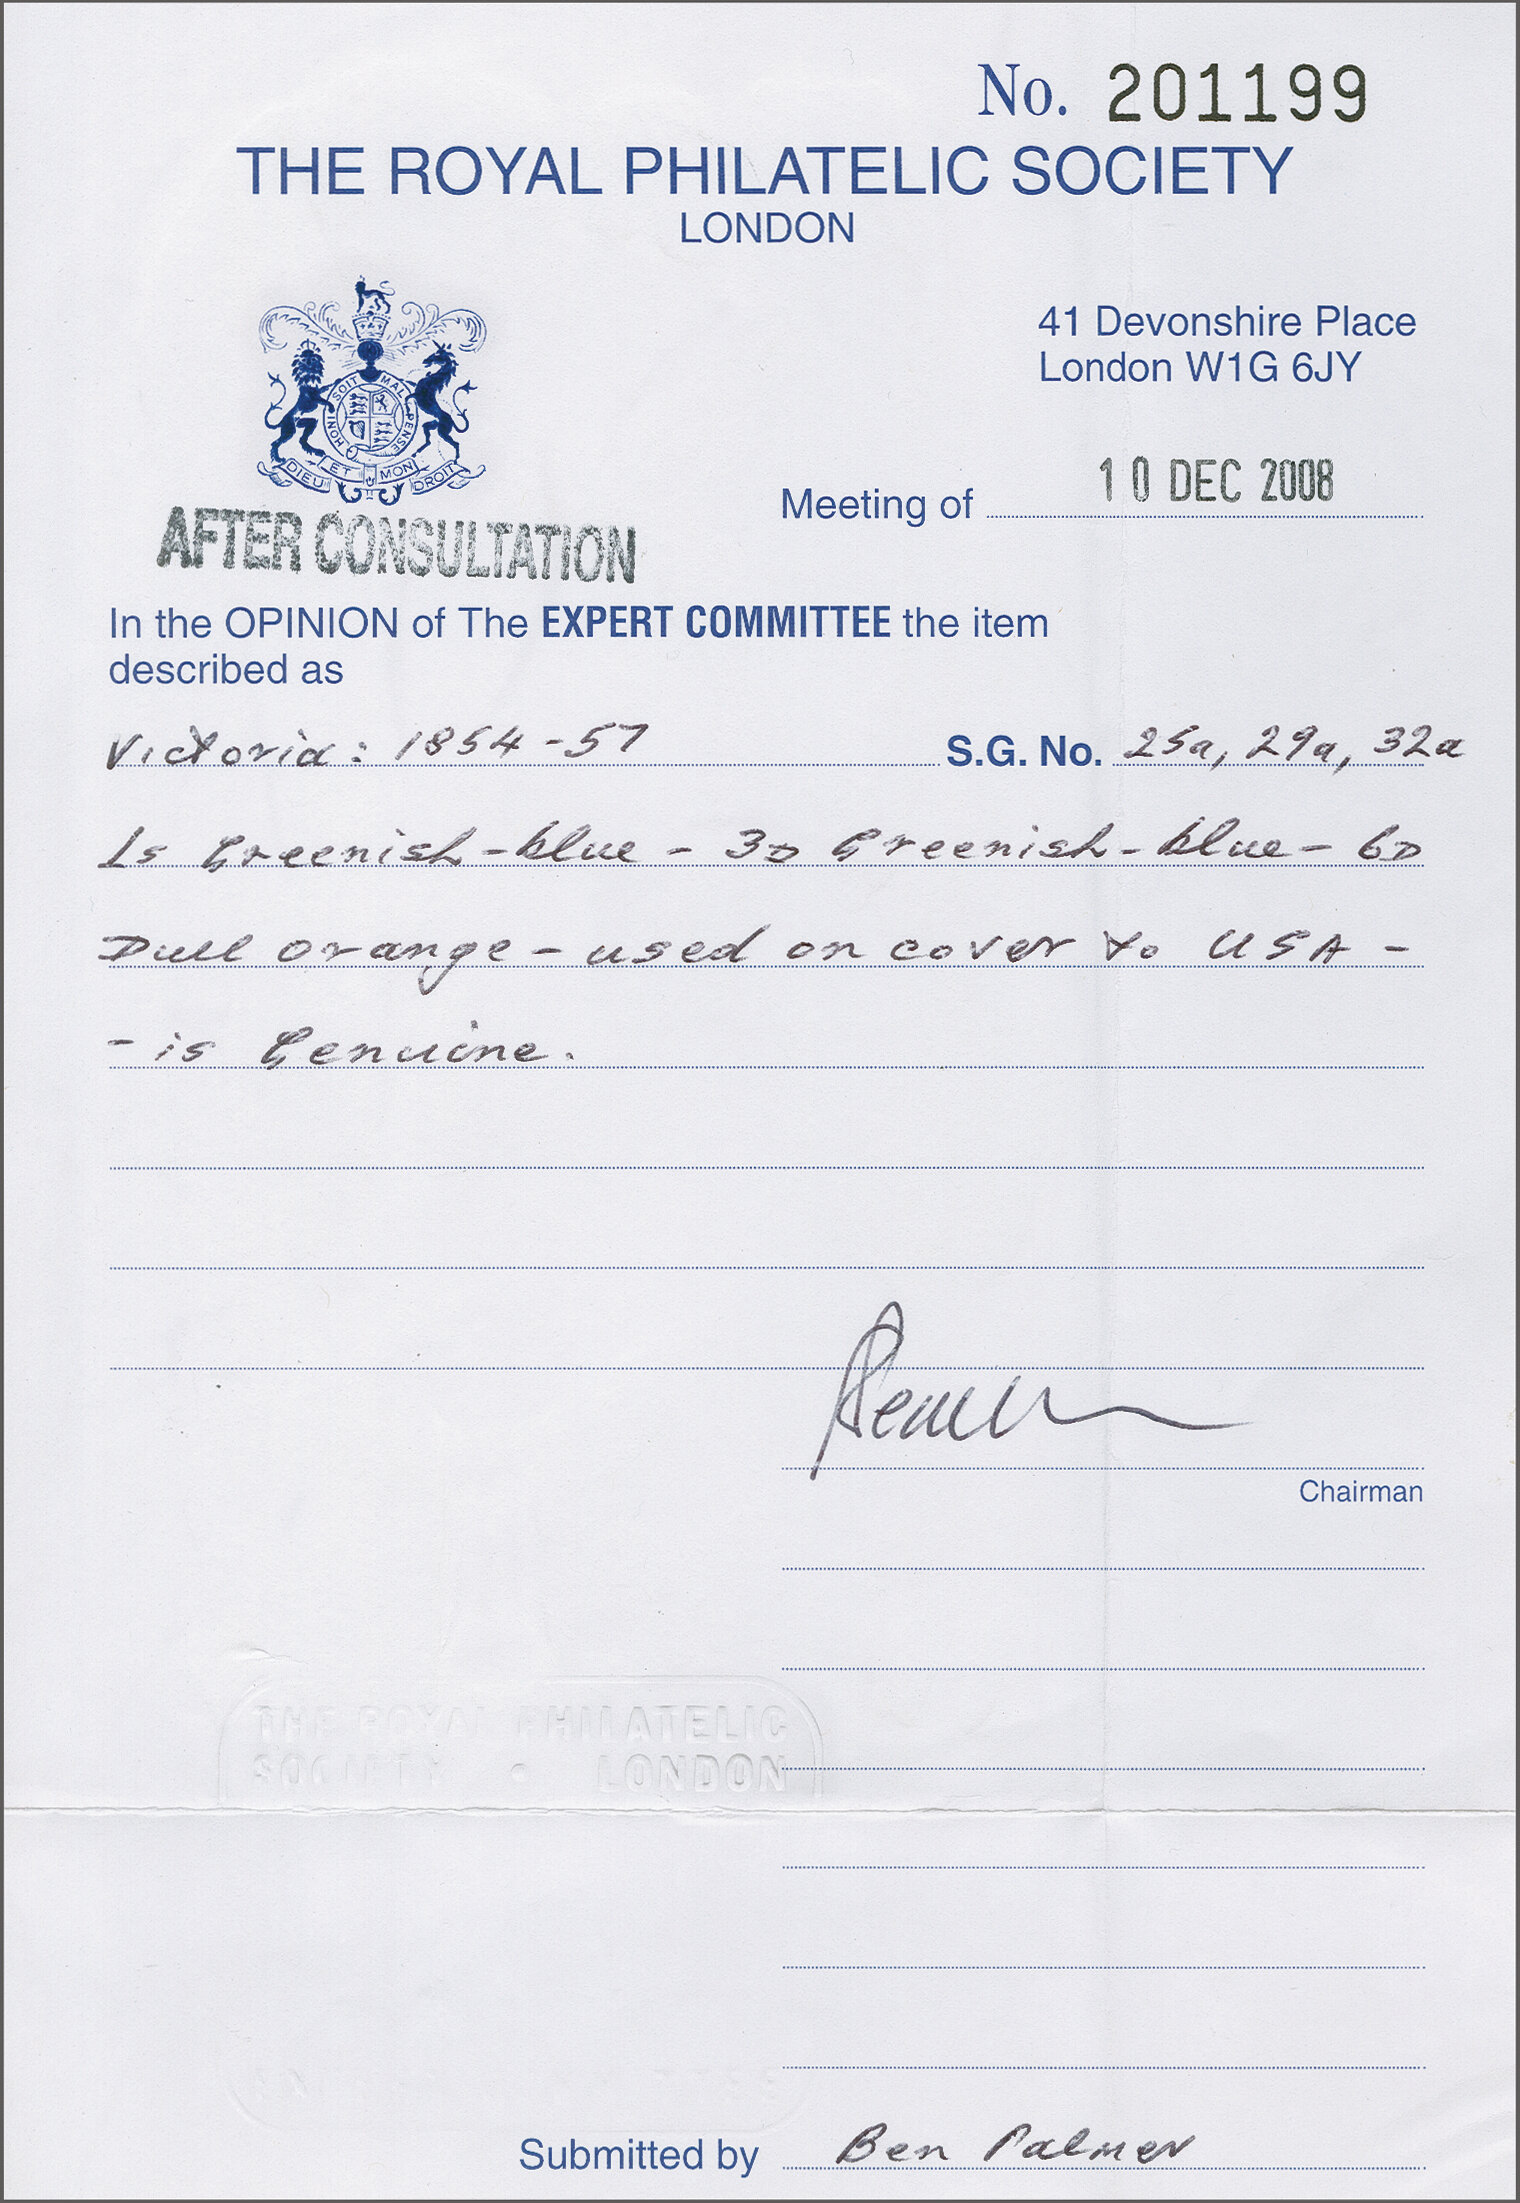 No. 201199
THE ROYAL PHILATELIC SOCIETY
LONDON
41 Devonshire Place
London W1G 6JY
HONI SOIT MAL PENSE
DIEU ET MON DROIT
Meeting of 10 DEC 2008
AFTER CONSULTATION
In the OPINION of The EXPERT COMMITTEE the item
described as
Victoria: 1854-57 S.G. No. 25a, 29a, 32a
1s Greenish-blue - 3D Greenish-blue - 6D
Dull orange - used on cover to USA -
- is Genuine.
Chairman
THE ROYAL PHILATELIC
SOCIETY • LONDON
Submitted by Ben Palmer